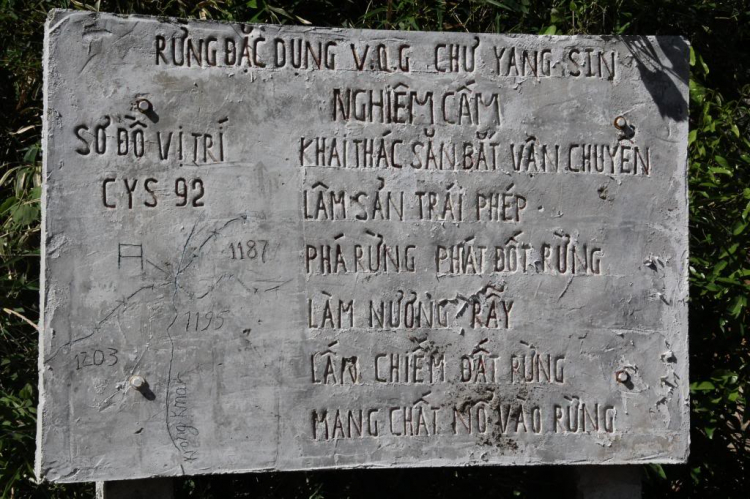 RỪNG ĐẶC DỤNG V.Q.G CHƯ YANG SIN
NGHIÊM CẤM
SƠ ĐỒ VỊ TRÍ
CYS 92
KHAI THÁC SĂN BẮT VẬN CHUYỂN
LÂM SẢN TRÁI PHÉP
PHÁ RỪNG PHÁT ĐỐT RỪNG
LÀM NƯƠNG RẪY
LẤN CHIẾM ĐẤT RỪNG
MANG CHẤT NỔ VÀO RỪNG
1187
1195
1203
Krông Kmar